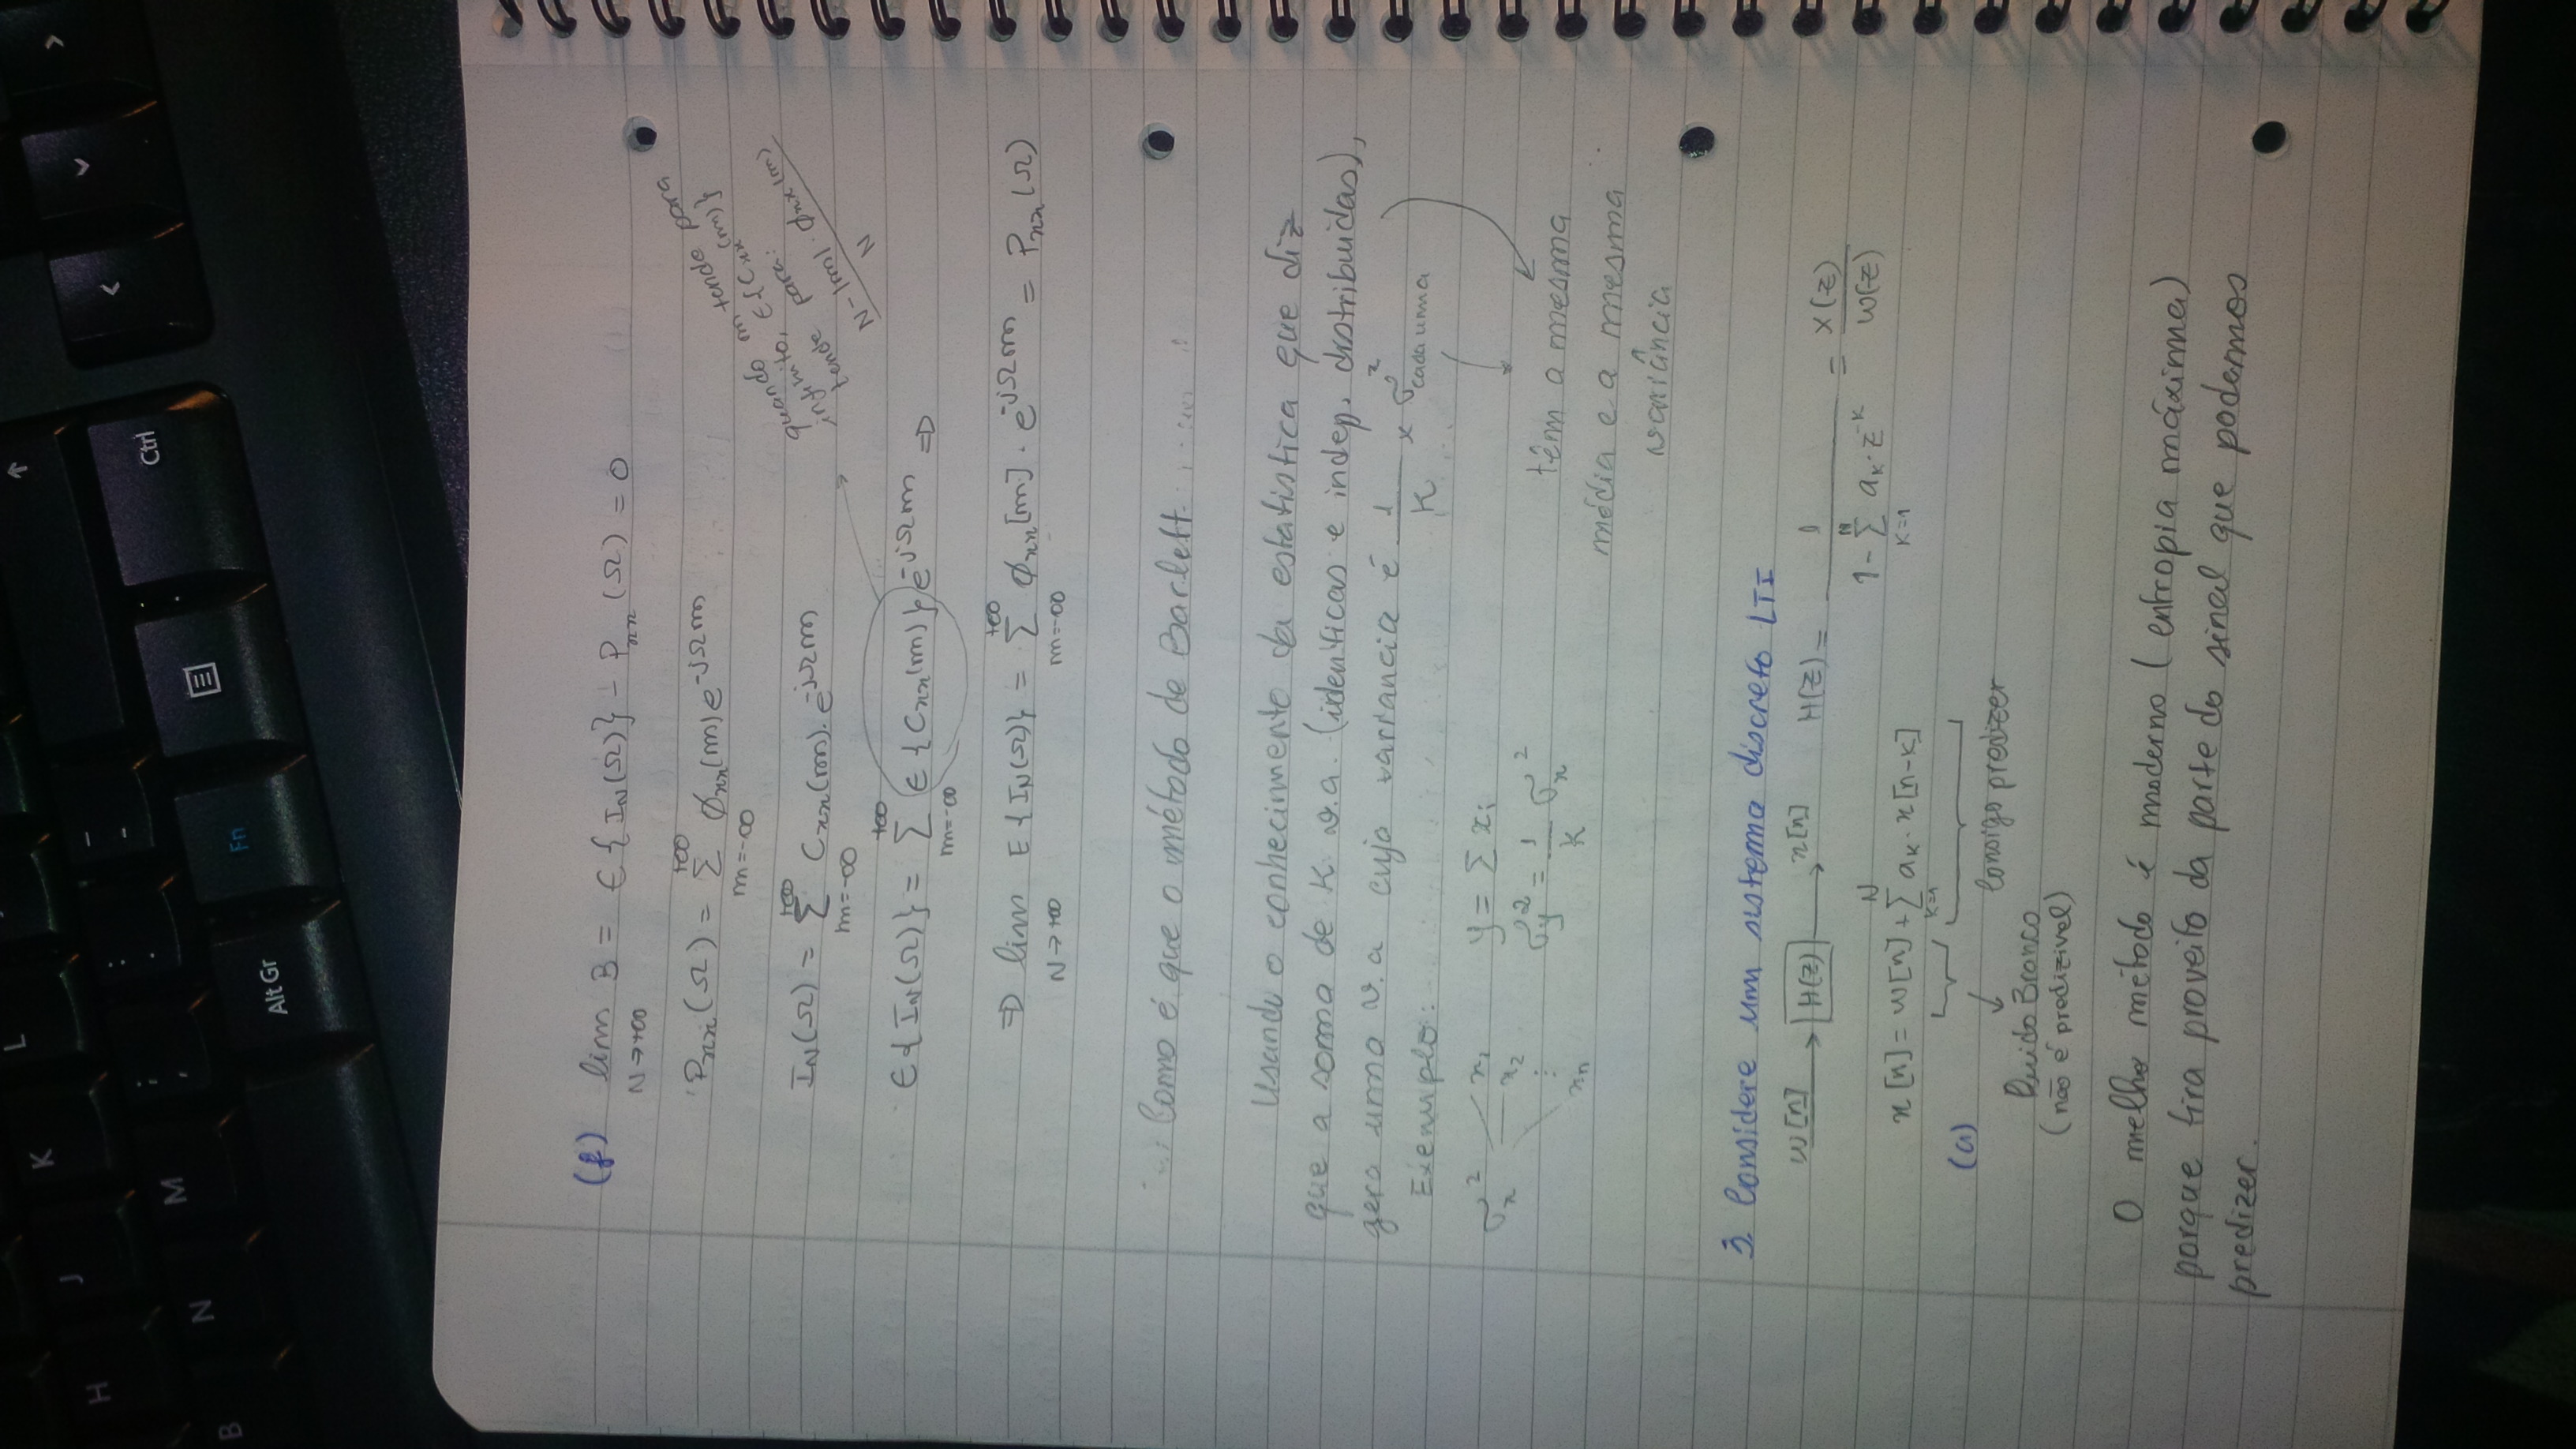 H J K L
B N M ; , : . - _
Alt Gr Fn Ctrl
(f) lim B = E{I_N(Ω)} - P_xx(Ω) = 0
N→+∞
P_xx(Ω) = Σ_{m=-∞}^{+∞} φ_xx(m) e^{-jΩm}
quando m tende para
infinito, E{C_xx(m)}
tende para:
N-|m| · φ_xx(m)
N
I_N(Ω) = Σ_{m=-∞}^{+∞} C_xx(m) · e^{-jΩm}
E{I_N(Ω)} = Σ_{m=-∞}^{+∞} E{C_xx(m)} e^{-jΩm} ⇒
⇒ lim_{N→+∞} E{I_N(Ω)} = Σ_{m=-∞}^{+∞} φ_xx[m] · e^{-jΩm} = P_xx(Ω)
Como é que o método de Barlett
Usando o conhecimento da estatistica que diz
que a soma de K v.a. (identicas e indep. distribuidas),
gera uma v.a cuja variancia é 1/K × σ²_cada uma
Exemplo:
σ_x² x_1 y = Σ x_i
x_2 σ_y² = 1/K σ_x²
⋮
x_n
têm a mesma
média e a mesma
variância
3. Considere um sistema discreto LTI
w[n] → H(z) → x[n] H(z) = 1/(1 - Σ_{K=1}^{N} a_K · z^{-K}) = X(z)/W(z)
x[n] = w[n] + Σ_{K=1}^{N} a_K · x[n-K]
(a)
Consigo predizer
Ruido Branco
(não é predizivel)
O melhor método é moderno (entropia máxima)
porque tira proveito da parte do sinal que podemos
predizer.